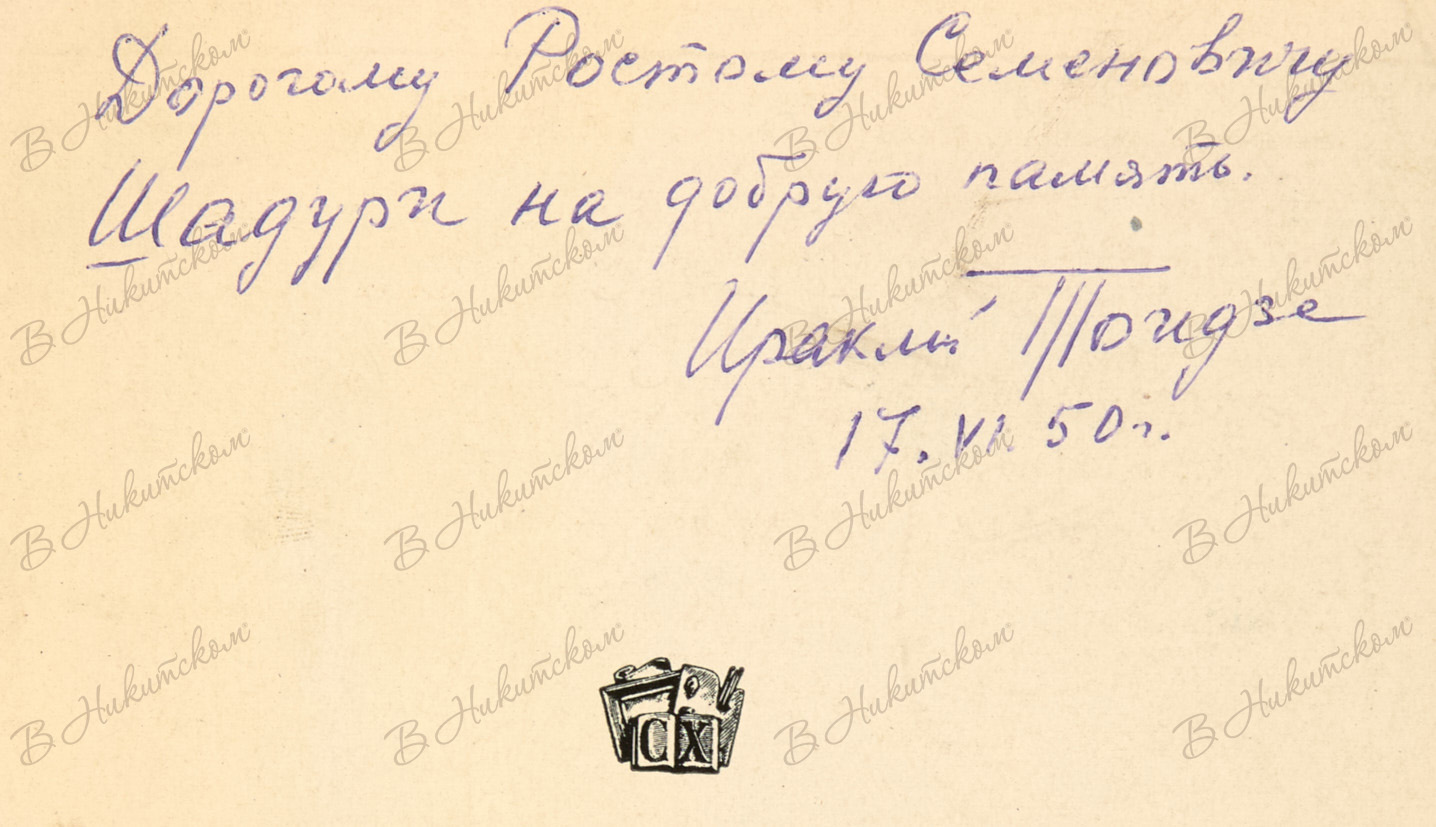 Дорогому Ростому Семеновичу
Шадури на добрую память.
Ираклий Тоидзе
17. VI. 50 г.
СХ
В Никитском